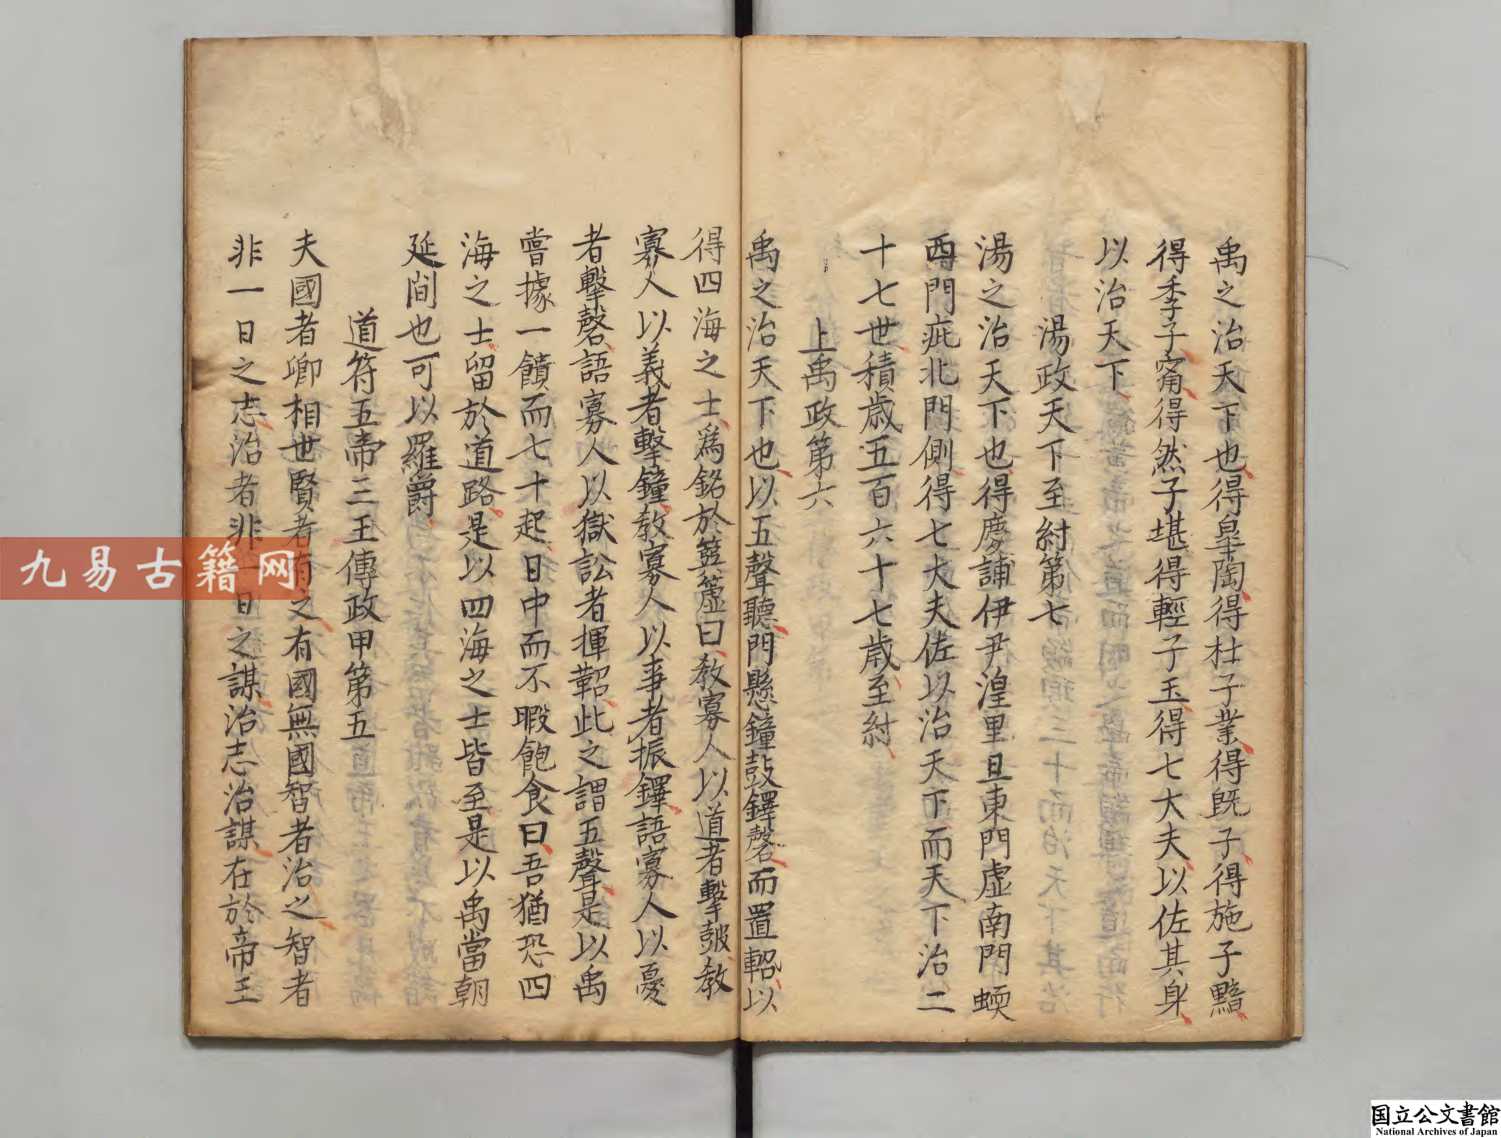 禹之治天下也得皐陶得杜子業得旣子得施子黯
得季子甯得然子堪得輕子玉得七大夫以佐其身
以治天下
湯政天下至紂第七
湯之治天下也得慶誧伊尹湟里且東門虚南門蝡
西門疵北門側得七大夫佐以治天下而天下治二
十七世積歳五百六十七歳至紂
上禹政第六
禹之治天下也以五聲聽門懸鐘鼓鐸磬而置鞀以
得四海之士爲銘於簨簴曰敎寡人以道者擊皷敎
寡人以義者擊鐘敎寡人以事者振鐸語寡人以憂
者擊磬語寡人以獄訟者揮鞀此之謂五聲是以禹
嘗據一饋而七十起日中而不暇飽食曰吾猶恐四
海之士留於道路是以四海之士皆至是以禹當朝
延間也可以羅爵
道符五帝三王傳政甲第五
夫國者卿相世賢者有之有國無國智者治之智者
非一日之志治者非一日之謀治志治謀在於帝王
九易古籍网
国立公文書館
National Archives of Japan